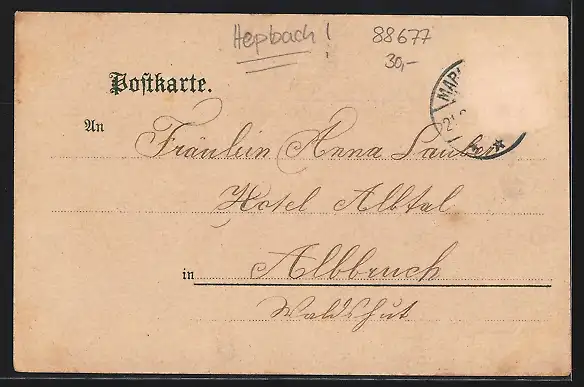 Hepbach!
88677
30,-
Postkarte.
MAR
21
An
Fräulein Anna Lauber
Hotel Albtal
in Albbruch
Waldshut